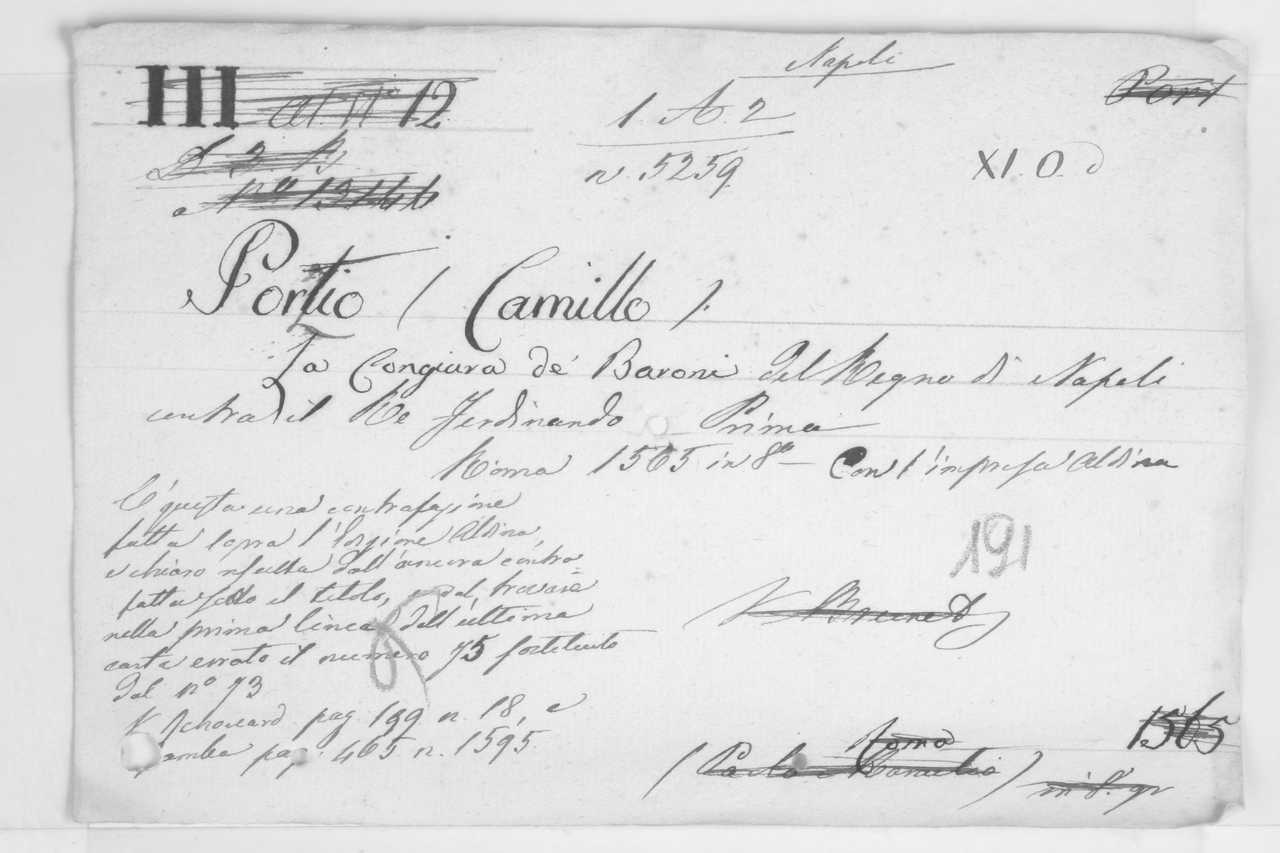 Napoli
III 12
Port
1. A. 2
n. 5259
XI. O. d
Portio (Camillo).
La Congiura de' Baroni del Regno di Napoli
contra il Re Ferdinando Primo
Roma 1565 in 8º – Con l'impresa Aldina
E' questa una contrafazione
fatta sopra l'Edizione Aldina,
e chiaro risulta dall'ancora contra-
fatta sotto il titolo, e dal trovarsi
nella prima linea dell'ultima
carta errato il numero 75 sostituito
dal nº 73
V. Renouard pag. 199 n. 18, e
Gamba pag. 465 n. 1595.
191
V. Brunet
Roma
1565
(Paolo Manutio)
in 8.º gr